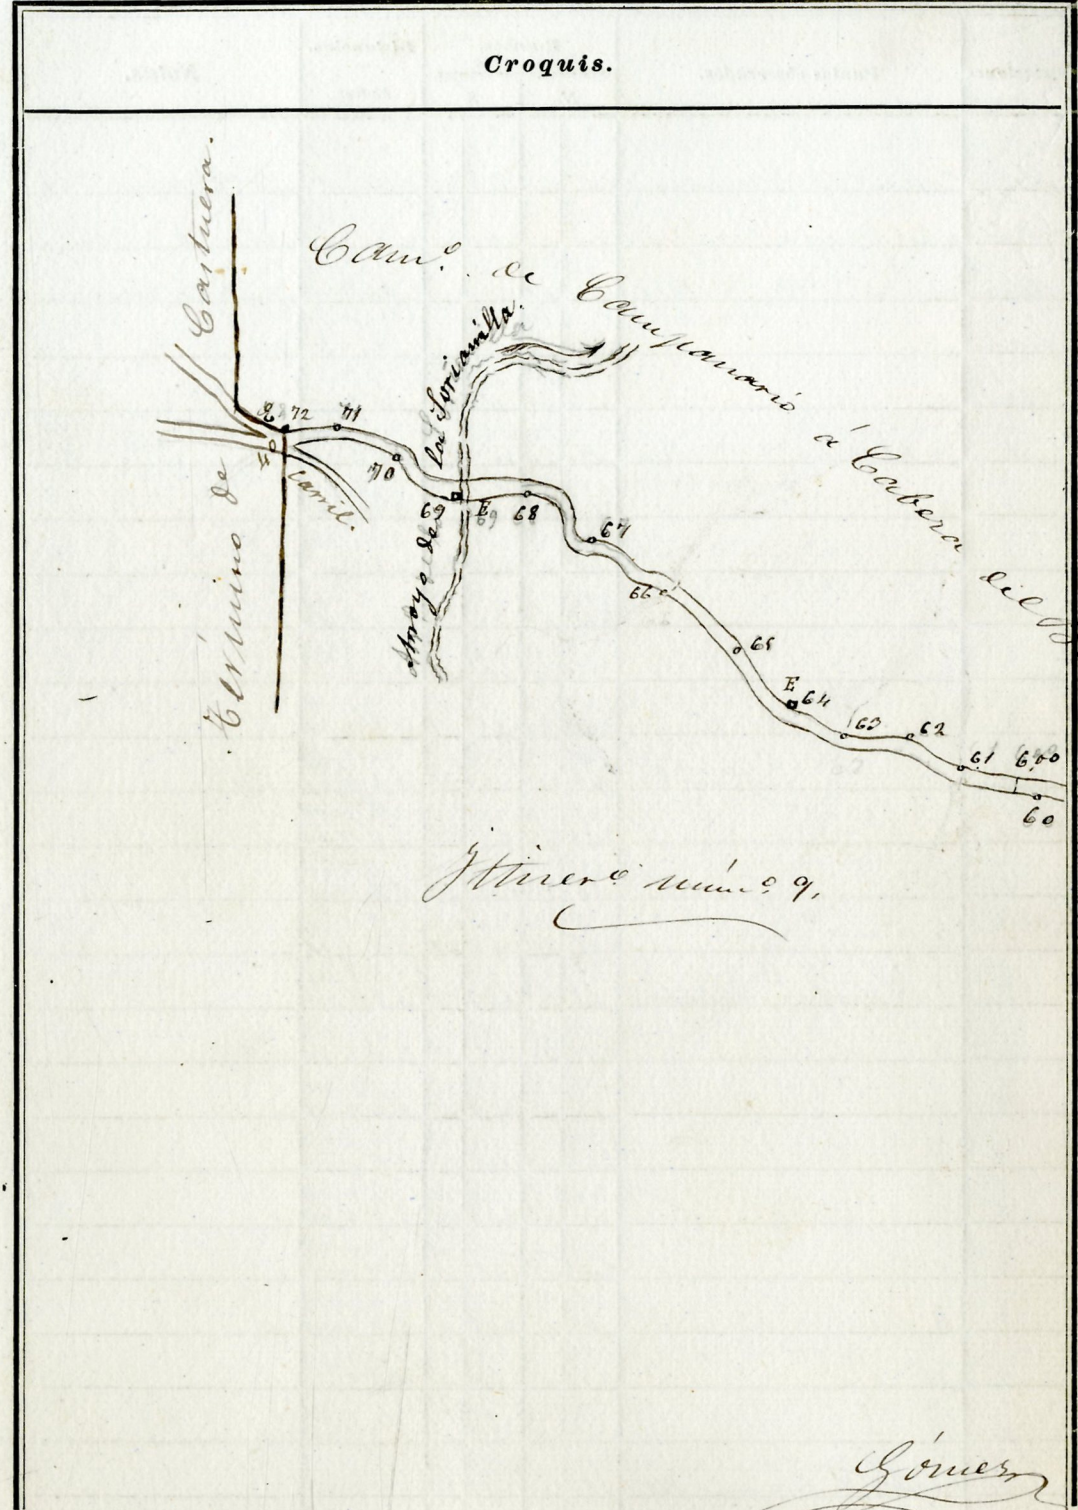 Croquis.
Término de Castuera.
Cam.º de Campanario á Cabeza del B
Arroyo de los
carril.
72
71
70
69
E
69
68
67
66
65
E
64
63
62
61
6,00
60
Itiner.º núm.º 9.
Gómez